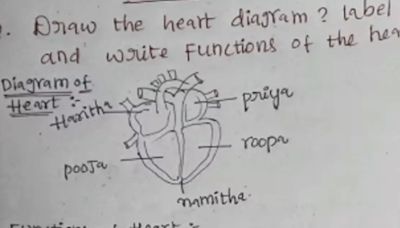 . Draw the heart diagram? label
and write Functions of the hea
Diagram of
Heart :-
Haritha
priya
pooja
roopa
namitha.
Heart :-